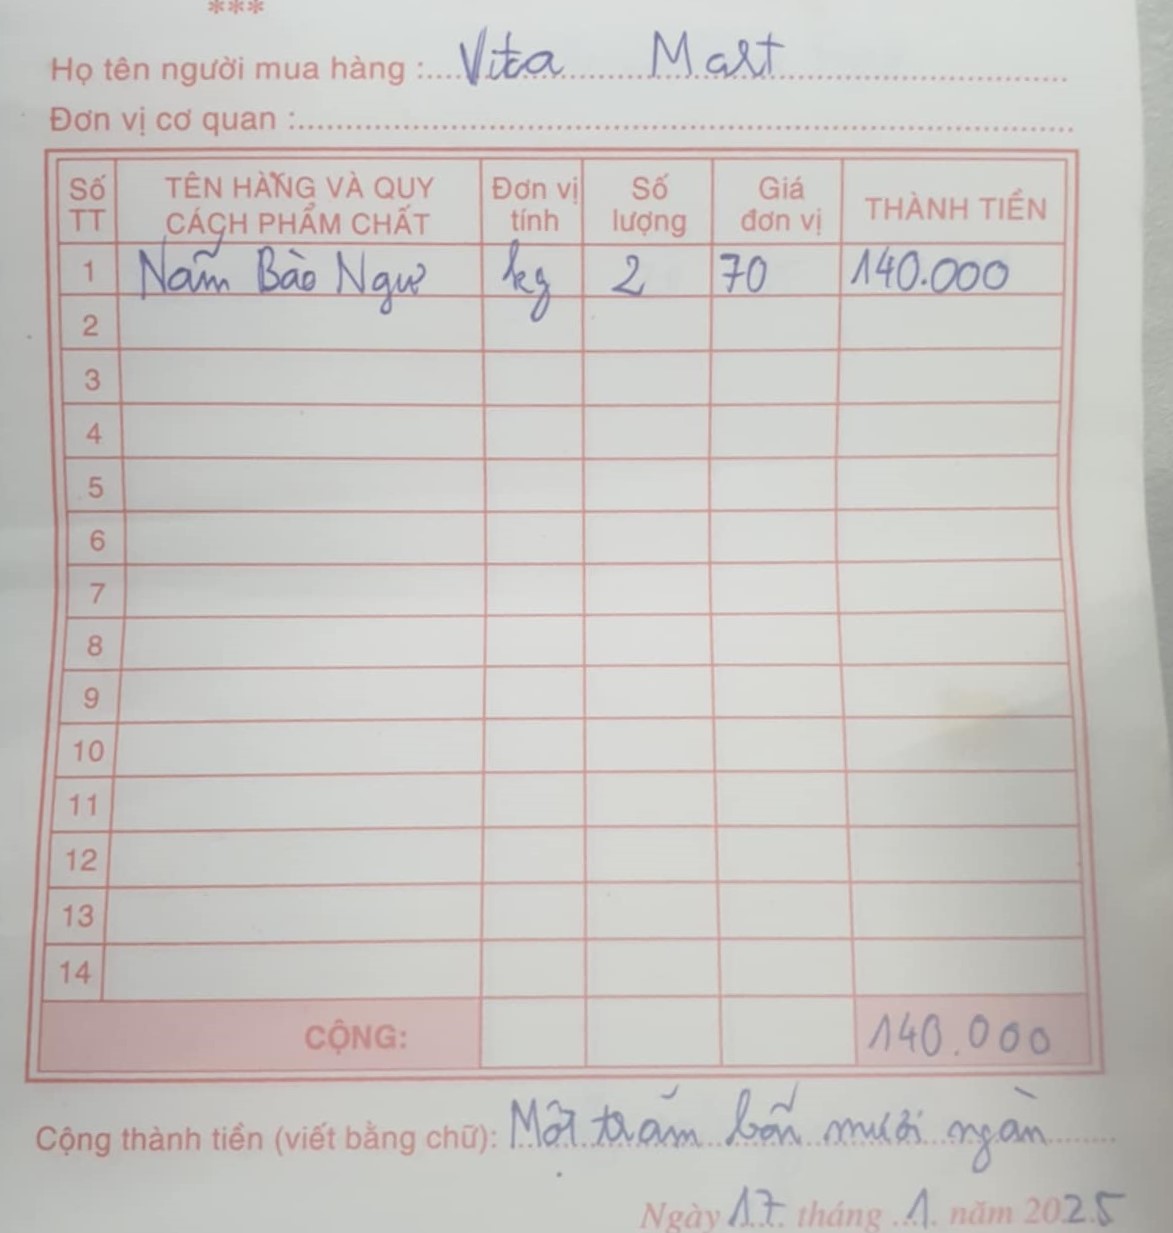 ***
Họ tên người mua hàng : Vita Mart
Đơn vị cơ quan :
Số TT TÊN HÀNG VÀ QUY CÁCH PHẨM CHẤT Đơn vị tính Số lượng Giá đơn vị THÀNH TIỀN
1 Nấm Bào Ngư kg 2 70 140.000
2
3
4
5
6
7
8
9
10
11
12
13
14
CỘNG: 140.000
Cộng thành tiền (viết bằng chữ): Một trăm bốn mươi ngàn
Ngày 17 tháng 1 năm 2025